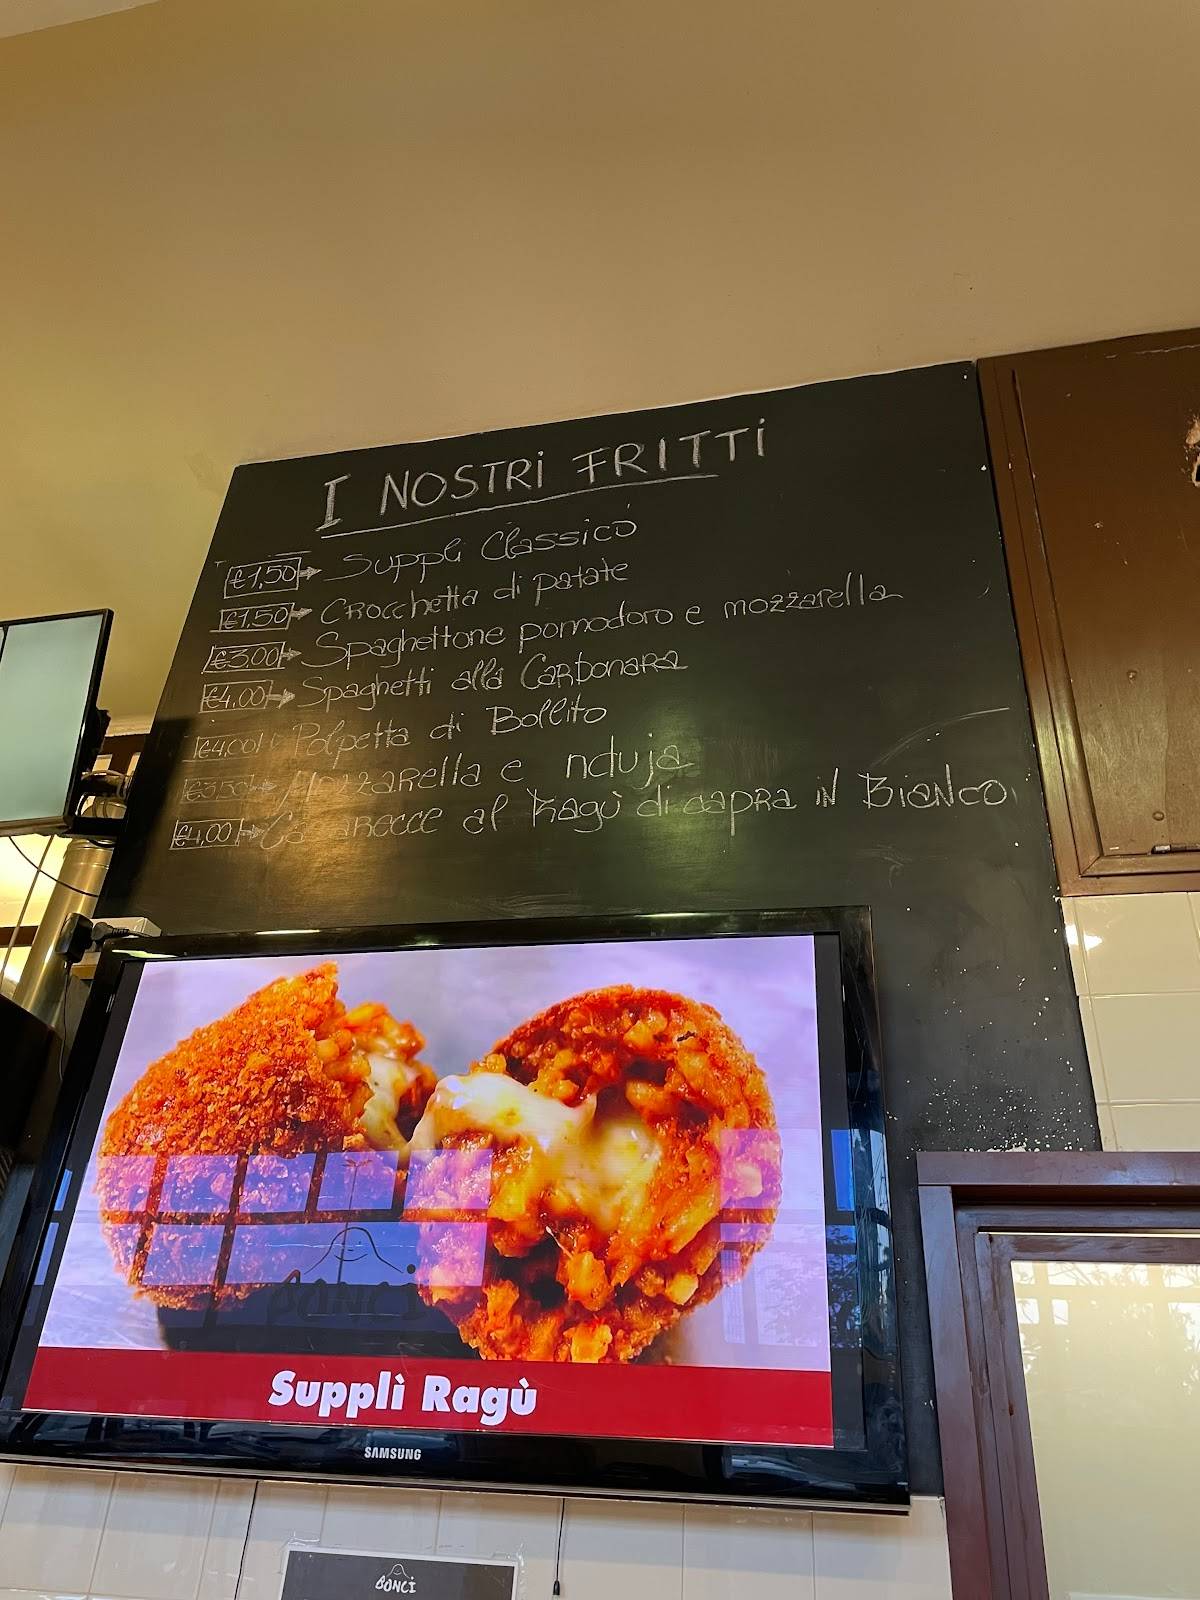 I NOSTRI FRITTI
€1,50 → Supplì Classico
€1,50 → Crocchetta di patate
€3,00 → Spaghettone pomodoro e mozzarella
€4,00 → Spaghetti alla Carbonara
€4,00 Polpetta di Bollito
€3,50 → Mozzarella e nduja
€4,00 → Casarecce al Ragù di capra in Bianco
BONCI
Supplì Ragù
SAMSUNG
BONCI